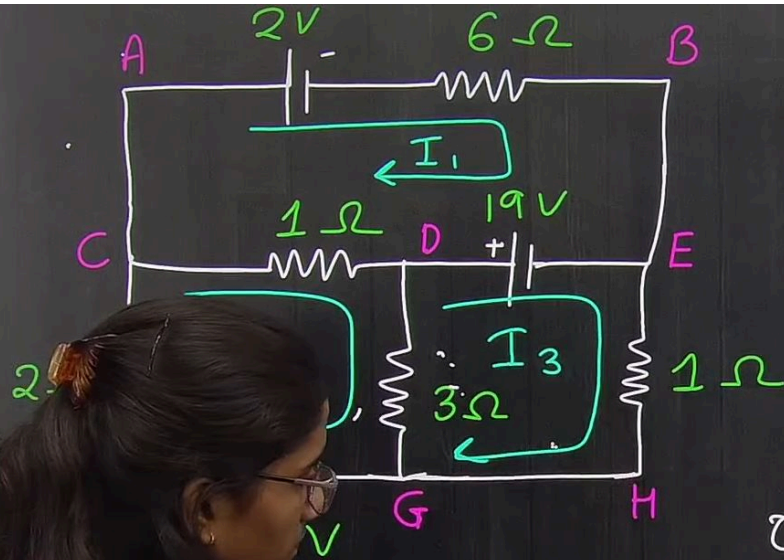 2V 6Ω
A B
-
I₁
1Ω 19V
C D + E
I₃
2
3Ω 1Ω
G H
V